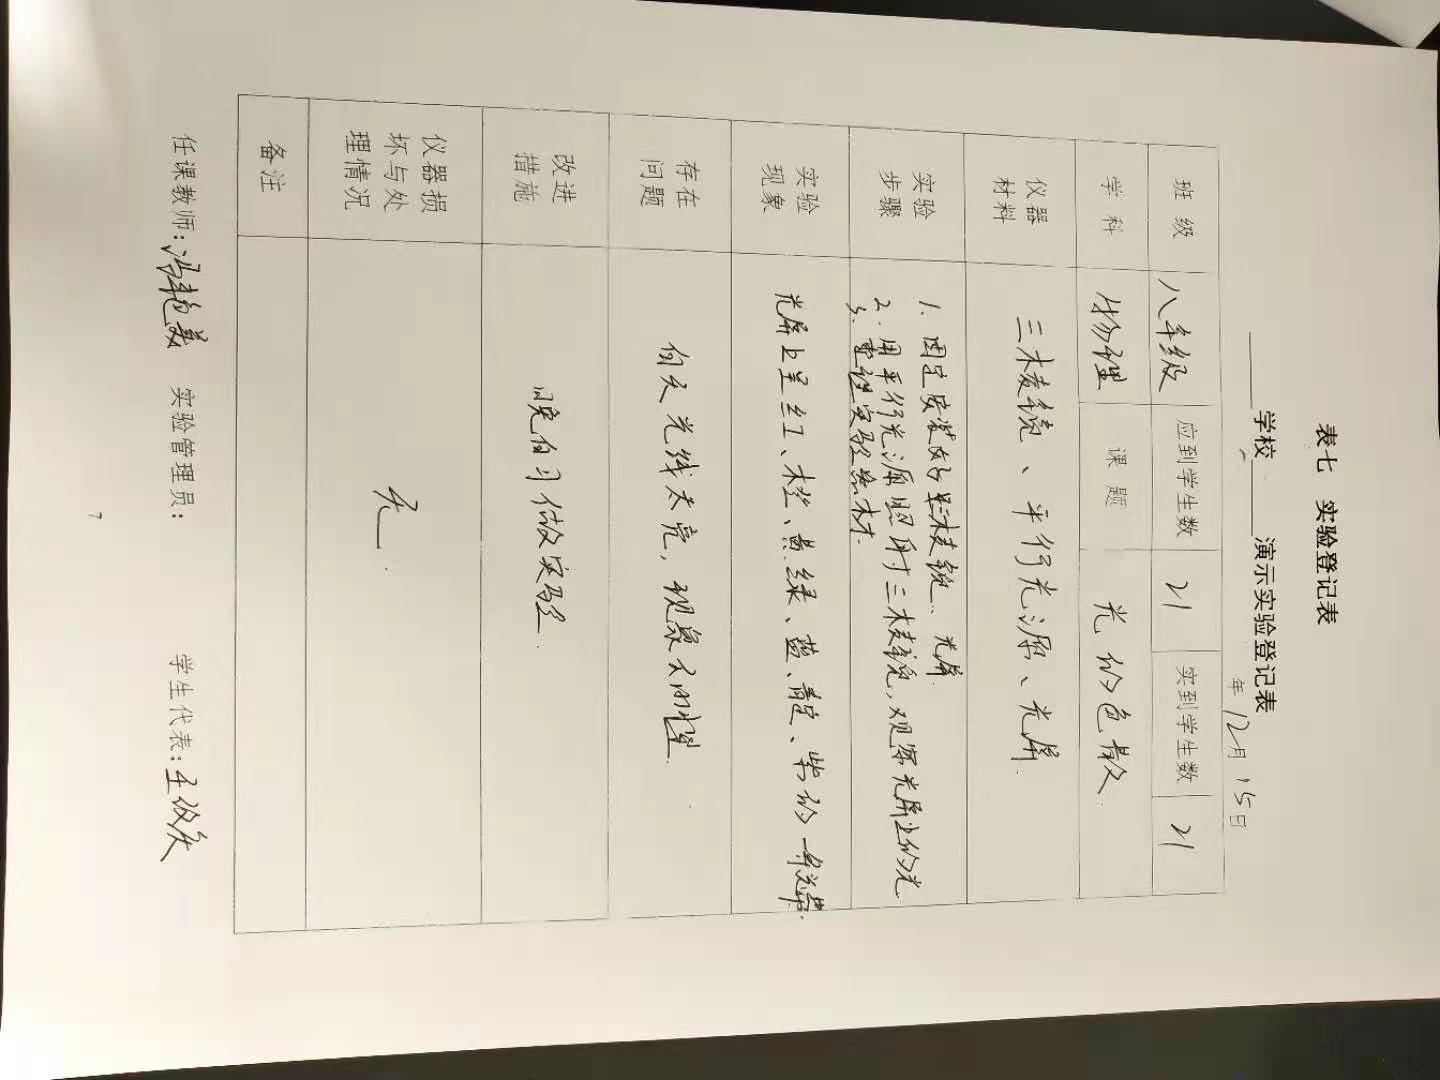 表七 实验登记表
学校 演示实验登记表
年 12月 15日
班 级 八年级 应到学生数 21 实到学生数 21
学 科 物理 课 题 光的色散.
仪器
材料
三棱镜、平行光源、光屏.
实验
步骤
1. 固定安装好三棱镜、光屏.
2. 用平行光源照射三棱镜,观察光屏上的光
3. 整理实验器材.
实验
现象
光屏上呈红、橙、黄、绿、蓝、靛、紫的一条光带.
存在
问题
白天光线太亮,现象不明显.
改进
措施
晚自习做实验.
仪器损
坏与处
理情况
无.
备注
任课教师: 冯艳美 实验管理员: 学生代表:
7